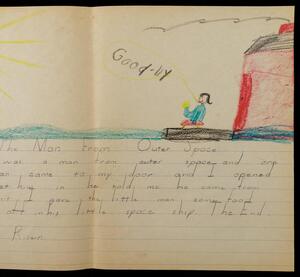 Good-by
The Man from Outer Space
was a man from outer space and one
came to my door and I opened
let him in he told me he came from
it I gave the little man some food
off in his little space ship. The End.